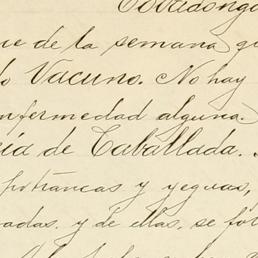 Covadonga
ue de la semana qu
do Vacuno. No hay
enfermedad alguna.
ía de Caballada.
potrancas y yeguas,
adas, y de ellas, se